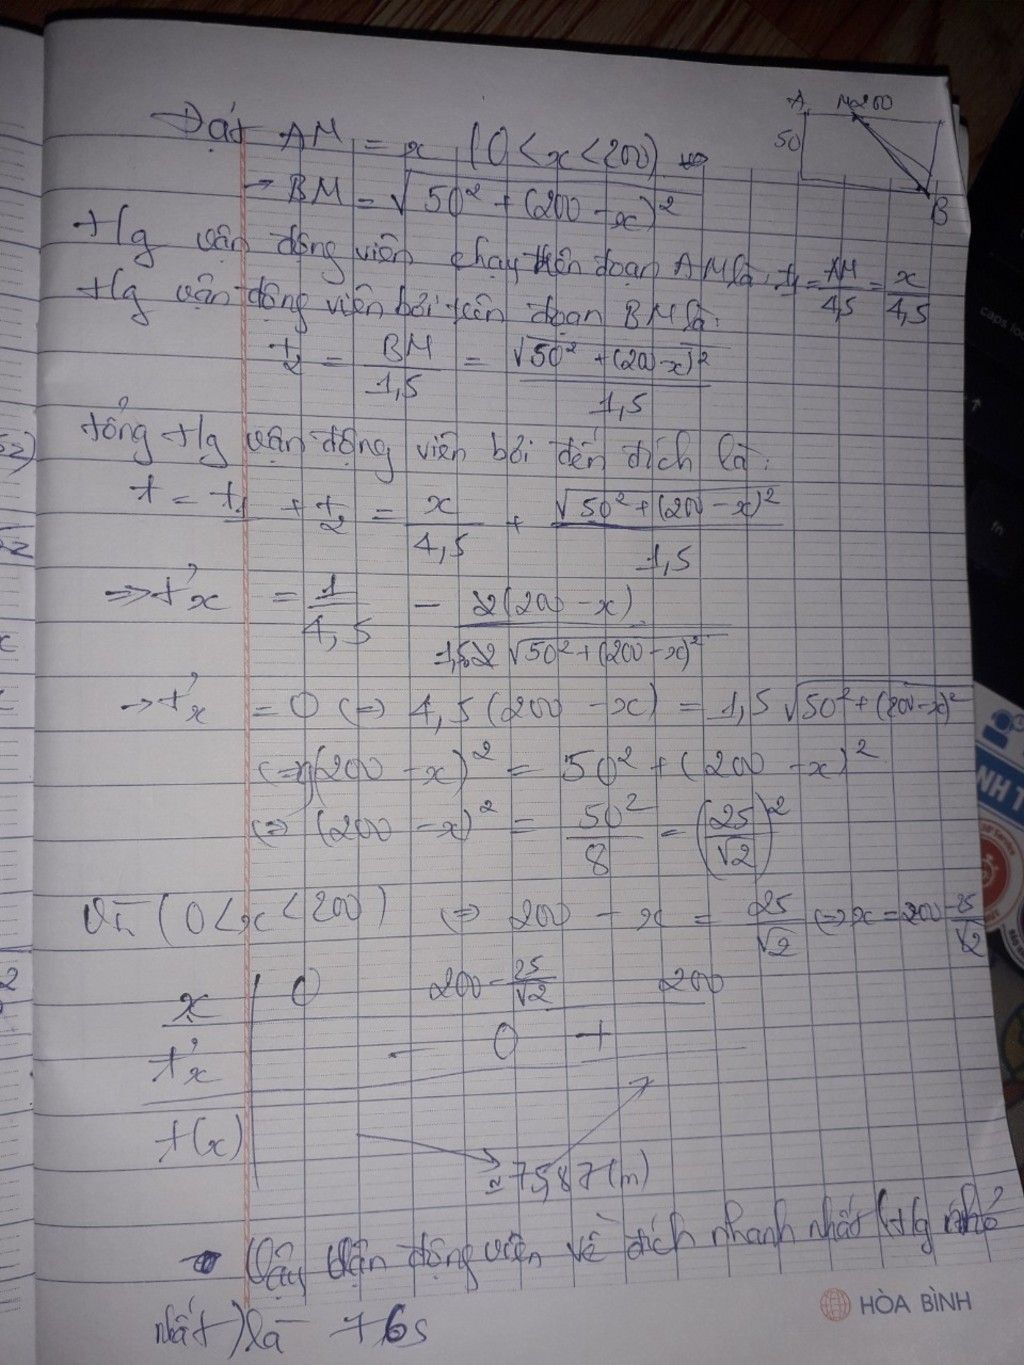 A M 200
50
B
Đặt AM = x (0 < x < 200)
→ BM = √50² + (200 - x)²
tg vận động viên chạy trên đoạn AM là: t₁ = AM/4,5 = x/4,5
tg vận động viên bơi trên đoạn BM là:
t₂ = BM/1,5 = √50² + (200-x)²/1,5
tổng tg vận động viên bơi đến đích là:
t = t₁ + t₂ = x/4,5 + √50² + (200 - x)²/1,5
⇒ t'x = 1/4,5 - 2(200 - x)/1,5.2 √50² + (200 - x)²
→ t'x = 0 ⇔ 4,5(200 - x) = 1,5 √50² + (200 - x)²
⇔ 9(200 - x)² = 50² + (200 - x)²
⇔ (200 - x)² = 50²/8 = (25/√2)²
Vì (0 < x < 200) ⇔ 200 - x = 25/√2 ⇔ x = 200 - 25/√2
x 0 200 - 25/√2 200
t'x - 0 +
t(x)
≈ 75,87 (m)
Vậy vận động viên về đích nhanh nhất (tg nhỏ
nhất) là 76s
HÒA BÌNH
caps lock
fn
NH T